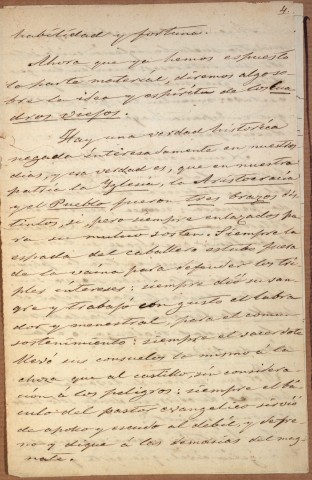 4.
habilidad y fortuna.
Ahora que ya hemos espuesto
la parte material, diremos algo so-
bre la idea y espíritu de los Cua
dros viejos.
Hay una verdad histórica
negada interesadamente en nuestros
dias, y esa verdad es, que en nuestra
patria la Yglesia, la Aristocracia
y el Pueblo fueron tres brazos dis
tintos, sí, pero siempre enlazados pa
ra su mutuo sosten. Siempre la
espada del caballero estubo fuera
de la vaina para defender los tri
ples intereses: siempre dió su san
gre y trabajó con gusto el labra
dor y menestral, para el comun
sostenimiento: siempre el sacerdote
llevó sus consuelos lo mismo á la
choza que al castillo, sin considera
cion á los peligros: siempre el bá
culo del pastor evangélico sirvió
de apoyo y escudo al débil, y de fre
no y dique á las demasias del mag
nate.